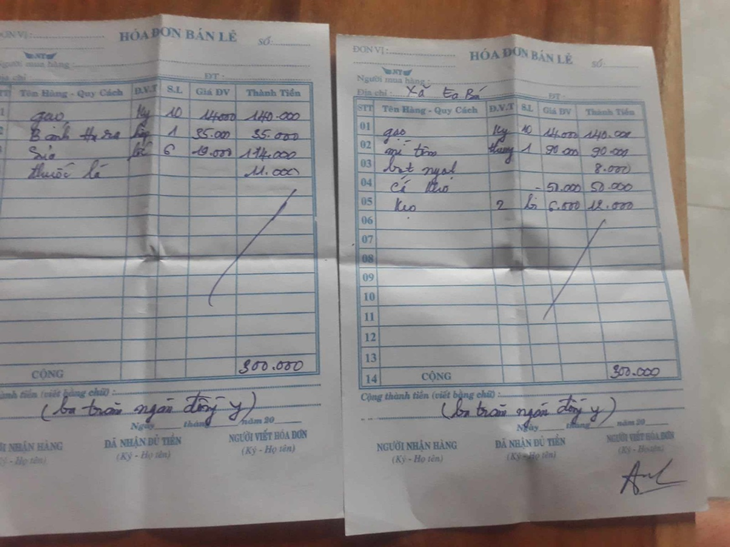 HÓA ĐƠN BÁN LẺ
ĐƠN VỊ :
SỐ
NT
Người mua hàng :
ĐT :
Địa chỉ
STT Tên Hàng - Quy Cách Đ.V.T S.L Giá ĐV Thành Tiền
1 gạo Kg 10 14000 140.000
2 1 35.000 35.000
3 Sữa lốc 6 19.000 114.000
thuốc lá 11.000
CỘNG 300.000
Cộng thành tiền (viết bằng chữ) :
(ba trăm ngàn đồng y)
Ngày tháng năm 20
NGƯỜI NHẬN HÀNG ĐÃ NHẬN ĐỦ TIỀN NGƯỜI VIẾT HÓA ĐƠN
(Ký - Họ tên) (Ký - Họ tên) (Ký - Họ tên)
HÓA ĐƠN BÁN LẺ
ĐƠN VỊ :
SỐ
NT
Người mua hàng :
ĐT :
Địa chỉ : Xã Ea Bá
STT Tên Hàng - Quy Cách Đ.V.T S.L Giá ĐV Thành Tiền
01 gạo Kg 10 14.000 140.000
02 mì tôm thùng 1 90.000 90.000
03 bột ngọt 8.000
04 cá khô 50.000 50.000
05 kẹo 2 bị 6.000 12.000
06
07
08
09
10
11
12
13
14 CỘNG 300.000
Cộng thành tiền (viết bằng chữ) :
(ba trăm ngàn đồng y)
Ngày tháng năm 20
NGƯỜI NHẬN HÀNG ĐÃ NHẬN ĐỦ TIỀN NGƯỜI VIẾT HÓA ĐƠN
(Ký - Họ tên) (Ký - Họ tên) (Ký - Họ tên)